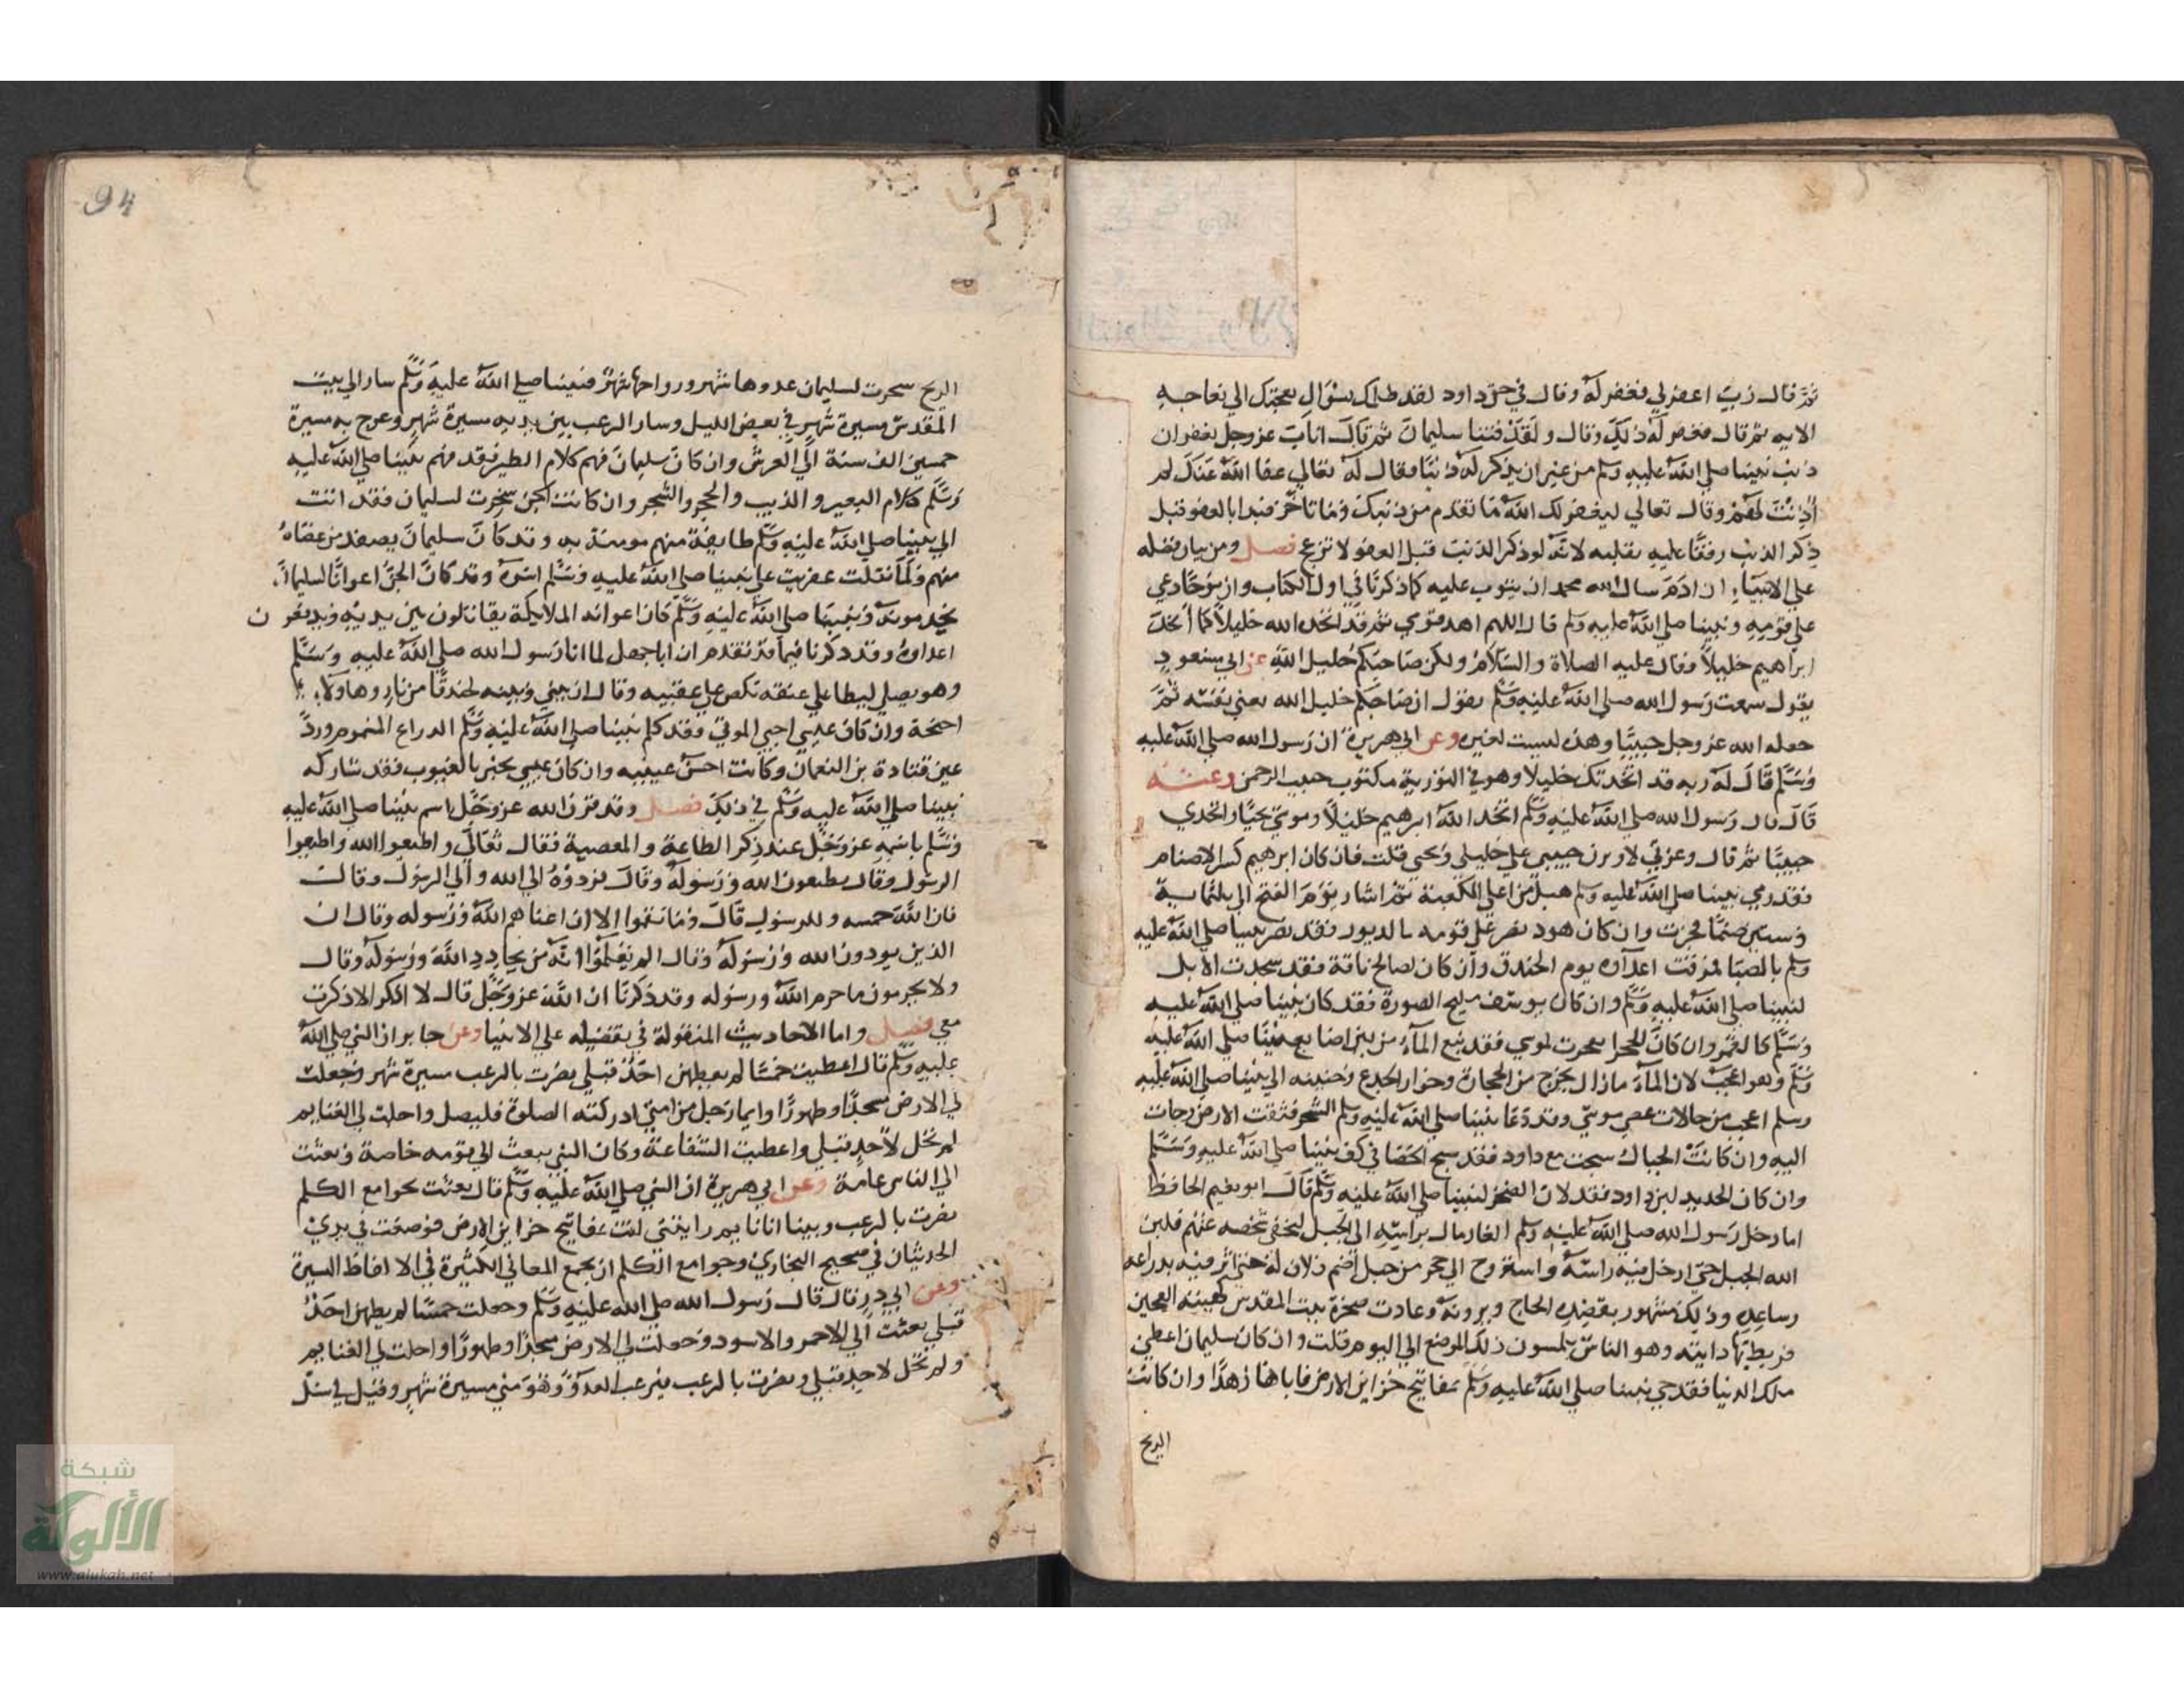 ثم قال رب اغفر لي فغفر له وقال في حق داود لقد ظلمك بسؤال نعجتك الي نعاجه
الايه ثم قال فغفر له ذلك وقال ولقد فتنا سليمان ثم قال اناب عزوجل بغفران
ذنب نبينا صلي الله عليه وسلم من غير ان يذكر له ذنبا فقال له تعالي عفا الله عنك لم
أذنت لهم وقال تعالي ليغفر لك الله ما تقدم من ذنبك وما تاخر فبدا بالعفو قبل
ذكر الذنب رفقا عليه بقلبه لانه لو ذكر الذنب قبل العفو لانزعج فصل ومن بيان فضله
علي الانبياء ان ادم سال الله بمحمد ان يتوب عليه كما ذكرنا في اول الكتاب وان نوحا دعي
علي قومه ونبينا صلي الله عليه وسلم قال اللهم اهد قومي ثم قد اتخده الله خليلا كما أتخد
ابراهيم خليلا وقال عليه الصلاة والسلام ولكن صاحبكم خليل الله عن ابي مسعود
يقول سمعت رسول الله صلي الله عليه وسلم يقول ان صاحبكم خليل الله يعني نفسه ثم
جعله الله عز وجل حبيبا وهذه ليست لغيره وعن ابي هريرة ان رسول الله صلي الله عليه
وسلم قال له ربه قد اتخدتك خليلا وهو في التورية مكتوب حبيب الرحمن وعنه
قال قال رسول الله صلي الله عليه وسلم اتخد الله ابرهيم خليلا وموسي نجيا واتخدني
حبيبا ثم قال وعزتي لاوثرن حبيبي علي خليلي ونجيي قلت فان كان ابرهيم كسر الاصنام
فقد رمي نبينا صلي الله عليه وسلم هبل من اعلي الكعبة ثم اشار يوم الفتح الي ثلثماية
وستين صنما فخرت وان كان هود نصر علي قومه بالدبور فقد نصر نبينا صلي الله عليه
وسلم بالصبا فمزقت اعداه يوم الخندق وان كان لصالح ناقة فقد سجدت الابل
لنبينا صلي الله عليه وسلم وان كان يوسف مليح الصورة فقد كان نبينا صلي الله عليه
وسلم كالقمر وان كان الحجر انفجرت لموسي فقد نبع الماء من بين اصابع نبينا صلي الله عليه
وسلم وهو اعجب لان الماء مازال يخرج من الحجارة وخوار الجدع وحنينه الي نبينا صلي الله عليه
وسلم اعجب من حالات عصي موسي وقد دعا نبينا صلي الله عليه وسلم الشجر فشقت الارض وجات
اليه وان كانت الجبال سبحت مع داود فقد سبح الحصا في كف نبينا صلي الله عليه وسلم
وان كان الحديد لين لداود فقد لان الصخر لنبينا صلي الله عليه وسلم قال ابو نعيم الحافظ
لما دخل رسول الله صلي الله عليه وسلم الغار مال براسه الي الجبل ليخفي شخصه عنهم فلين
الله الجبل حتي ادخل فيه راسه واستروح الي حجر من جبل اصم فلان له حتي اثر فيه بدراعه
وساعده وذلك مشهور يقصده الحاج ويرونه وعادت صخرة بيت المقدس كهيئة العجين
فربط بها دابته وهو الناس يلمسون ذلك الموضع الي اليوم قلت وان كان سليمان اعطي
ملك الدنيا فقد جي نبينا صلي الله عليه وسلم بمفاتيح خزاين الارض فاباها زهدا وان كانت
الريح
94
الريح سخرت لسليمان غدوها شهر ورواحها شهر فنبينا صلي الله عليه وسلم سار الي بيت
المقدس مسيرة شهر في بعض الليل وسار الرعب بين يديه مسيرة شهر وعرج به مسيرة
خمسين الف سنة الي العرش وان كان سليمان فهم كلام الطير فقد فهم نبينا صلي الله عليه
وسلم كلام البعير والذيب والحجر والشجر وان كانت الجن سخرت لسليمان فقد اتت
الي نبينا صلي الله عليه وسلم طايفة منهم مومنة به وقد كان سليمان يصفد من عصاه
منهم ولما تفلت عفريت علي نبينا صلي الله عليه وسلم اسره وقد كان الجن اعوانا لسليمان
يخدمونه ونبينا صلي الله عليه وسلم كان اعوانه الملايكة يقاتلون بين يديه ويدفعون
اعداوه وقد ذكرنا فيما تقدم ان اباجهل لما اتا رسول الله صلي الله عليه وسلم
وهو يصلي ليطا علي عنقه نكص علي عقبيه وقال ان بيني وبينه لخندقا من نار وهاولاء
اجنحة وان كان عيسي احيي الموتي فقد كلم نبينا صلي الله عليه وسلم الدراع المسموم ورد
عين قتادة بن النعمان وكانت احسن عينيه وان كان عيسي يخبر بالغيوب فقد شاركه
نبينا صلي الله عليه وسلم في ذلك فصل وقد قرن الله عزوجل اسم نبينا صلي الله عليه
وسلم باسمه عزوجل عند ذكر الطاعة والمعصية فقال تعالي واطيعوا الله واطيعوا
الرسول وقال يطيعون الله ورسوله وقال فردوه الي الله والي الرسول وقال
فان لله خمسه وللرسول قال وما نقموا الا ان اغناهم الله ورسوله وقال ان
الذين يودون الله ورسوله وقال الم يعلموا انه من يحادد الله ورسوله وقال
ولا يحرمون ما حرم الله ورسوله وقد ذكرنا ان الله عزوجل قال لا اذكر الا ذكرت
معي فصل واما الاحاديث المنقولة في تفضيله علي الانبيا وعن جابر ان النبي صلي الله
عليه وسلم قال اعطيت خمسا لم يعطهن احد قبلي نصرت بالرعب مسيرة شهر وجعلت
لي الارض مسجدا وطهورا وايما رجل من امتي ادركته الصلوة فليصل واحلت لي الغنايم
لم تحل لاحد قبلي واعطيت الشفاعة وكان النبي يبعث الي قومه خاصة وبعثت
الي الناس عامة وعن ابي هريرة ان النبي صلي الله عليه وسلم قال بعثت بجوامع الكلم
نصرت بالرعب وبينا انا نايم رايتني اتت بمفاتيح خزاين الارض فوضعت في يدي
الحديثان في صحيح البخاري وجوامع الكلم ان يجمع المعاني الكثيرة في الالفاظ اليسيرة
وعن ابي ذر قال قال رسول الله صلي الله عليه وسلم وجعلت خمسا لم يعطهن احد
قبلي بعثت الي الاحمر والاسود وجعلت لي الارض مسجدا وطهورا واحلت لي الغنايم
ولم تحل لاحد قبلي ونصرت بالرعب فيرعب العدو وهو مني مسيرة شهر وقيل لي سل
شبكة
الألوكة
www.alukah.net